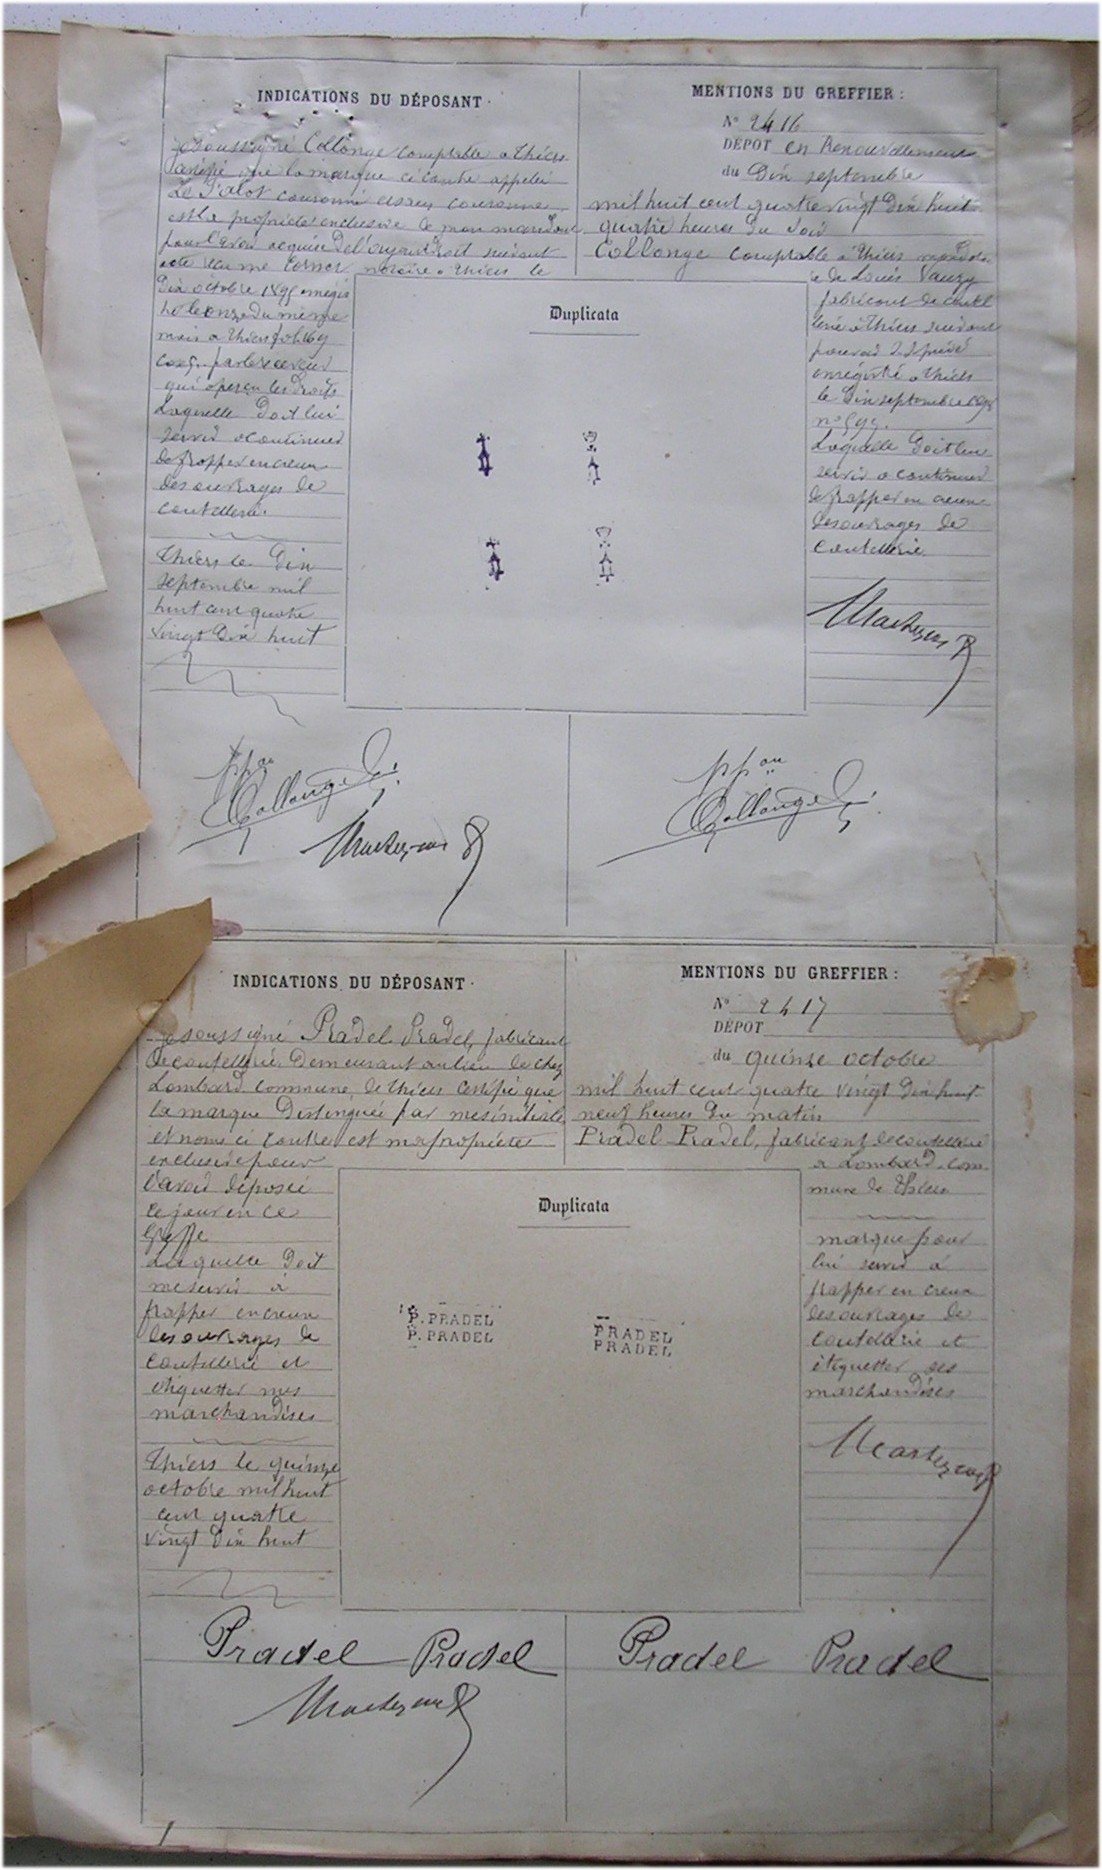 INDICATIONS DU DÉPOSANT
Je soussigné Collonge comptable à Thiers
certifie que la marque ci contre appelée
couronné couronne
est la propriété exclusive de mon mandant
pour l'avoir acquise suivant
notaire à Thiers le
Dix octobre
le onze du même
mois à Thiers
par le receveur
qui a perçu les droits
Laquelle doit lui
servir à continuer
de frapper en creux
des ouvrages de
coutellerie.
Thiers le Dix
septembre mil
huit cent quatre
vingt dix huit
MENTIONS DU GREFFIER :
N° 2416
DÉPOT en Renouvellement
du Dix septembre
mil huit cent quatre vingt dix huit
quatre heures du soir
Collonge comptable à Thiers mandatai
re de Louis
fabricant de coutel
lerie à Thiers suivant
pouvoir
enregistré à Thiers
le Dix septembre
Laquelle doit lui
servir à continuer
de frapper en creux
des ouvrages de
coutellerie
Duplicata
ppon
Collonge
ppon
Collonge
INDICATIONS DU DÉPOSANT
Je soussigné Pradel Pradel, fabricant
de coutellerie Demeurant au lieu de chez
Lombard commune de Thiers certifie que
la marque Distinguée par mes initiales
et noms ci contre est ma propriété
exclusive pour
l'avoir déposée
ce jour en ce
Greffe
Laquelle doit
me servir à
frapper en creux
des ouvrages de
coutellerie et
étiquetter mes
marchandises
Thiers le quinze
octobre mil huit
cent quatre
vingt dix huit
MENTIONS DU GREFFIER :
N° 2417
DÉPOT
du quinze octobre
mil huit cent quatre vingt dix huit
neuf heures du matin
Pradel Pradel, fabricant de coutellerie
à Lombard, com
mune de Thiers
marque pour
lui servir à
frapper en creux
des ouvrages de
coutellerie et
étiquetter ses
marchandises
Duplicata
P. PRADEL
P. PRADEL
PRADEL
PRADEL
Pradel Pradel
Pradel Pradel